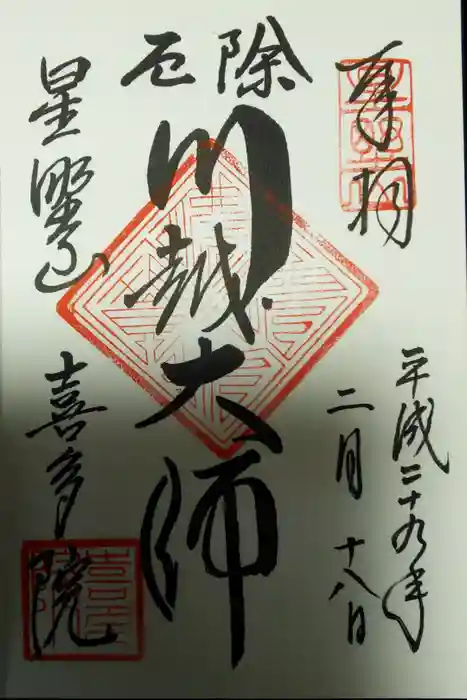 奉拝
平成二十九年
二月十八日
除厄
川越大師
星野山
喜多院